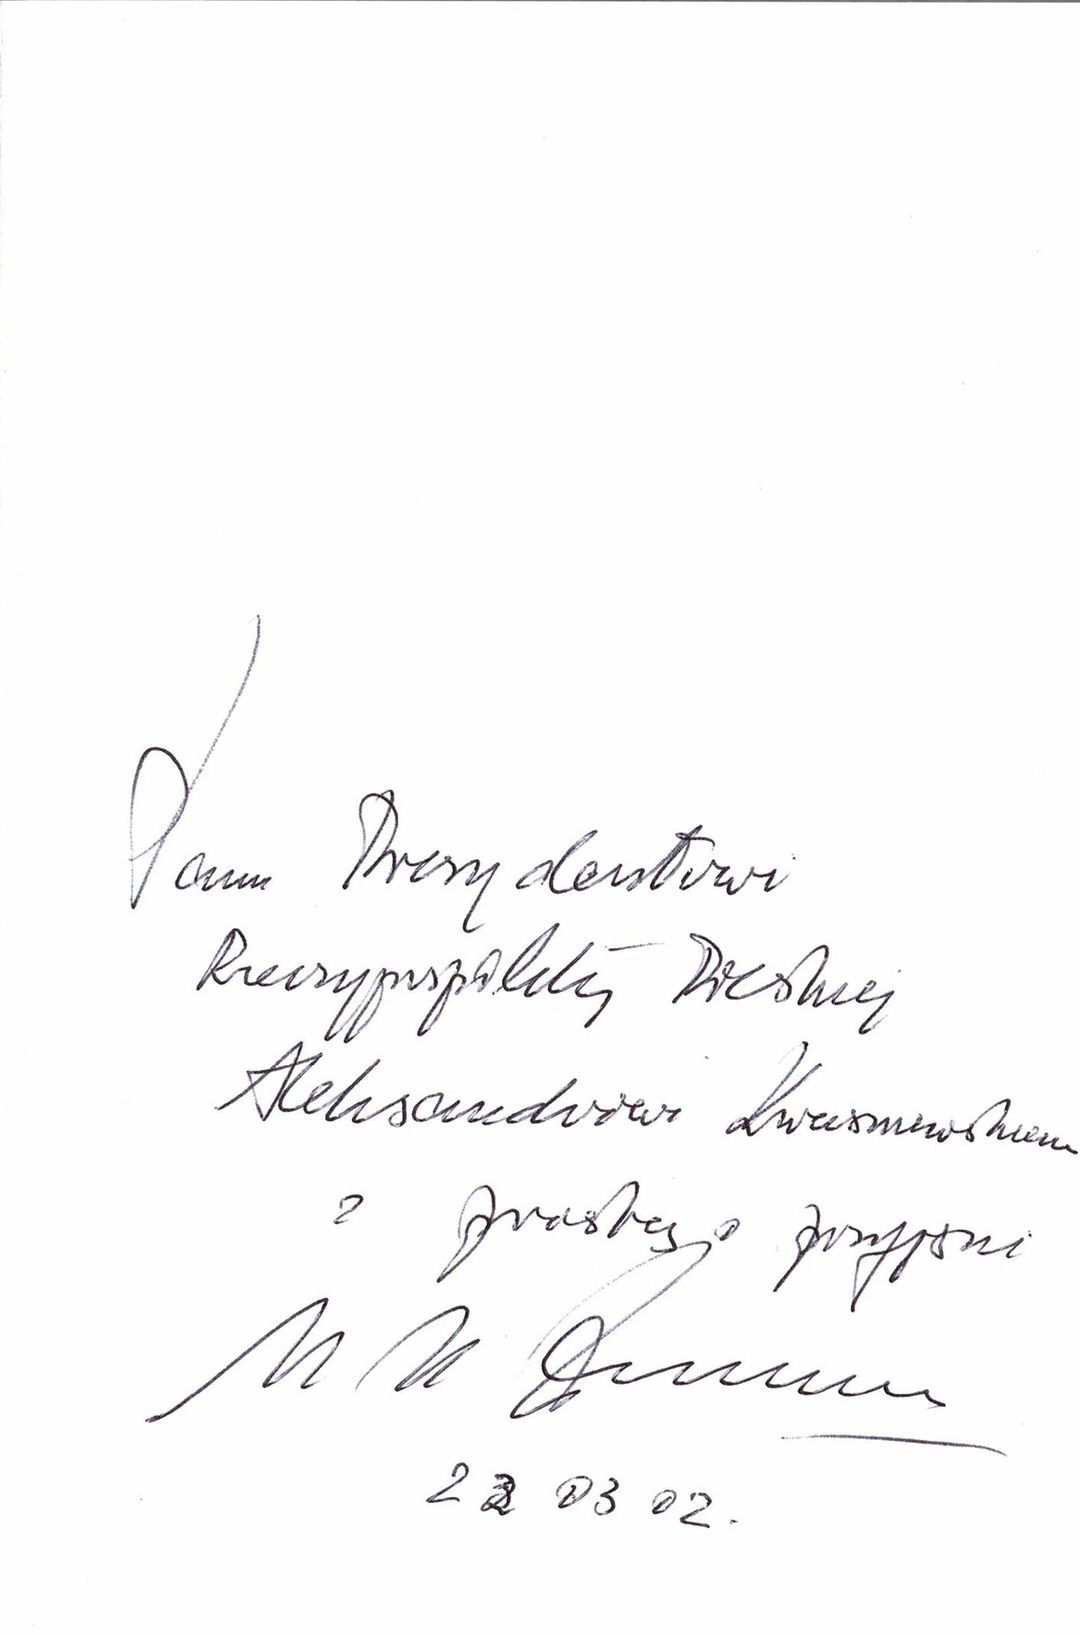 Panu Prezydentowi
Rzeczypospolitej Polskiej
Aleksandrowi Kwaśniewskiemu
z prośbą o przyjęcie
22 03 02.